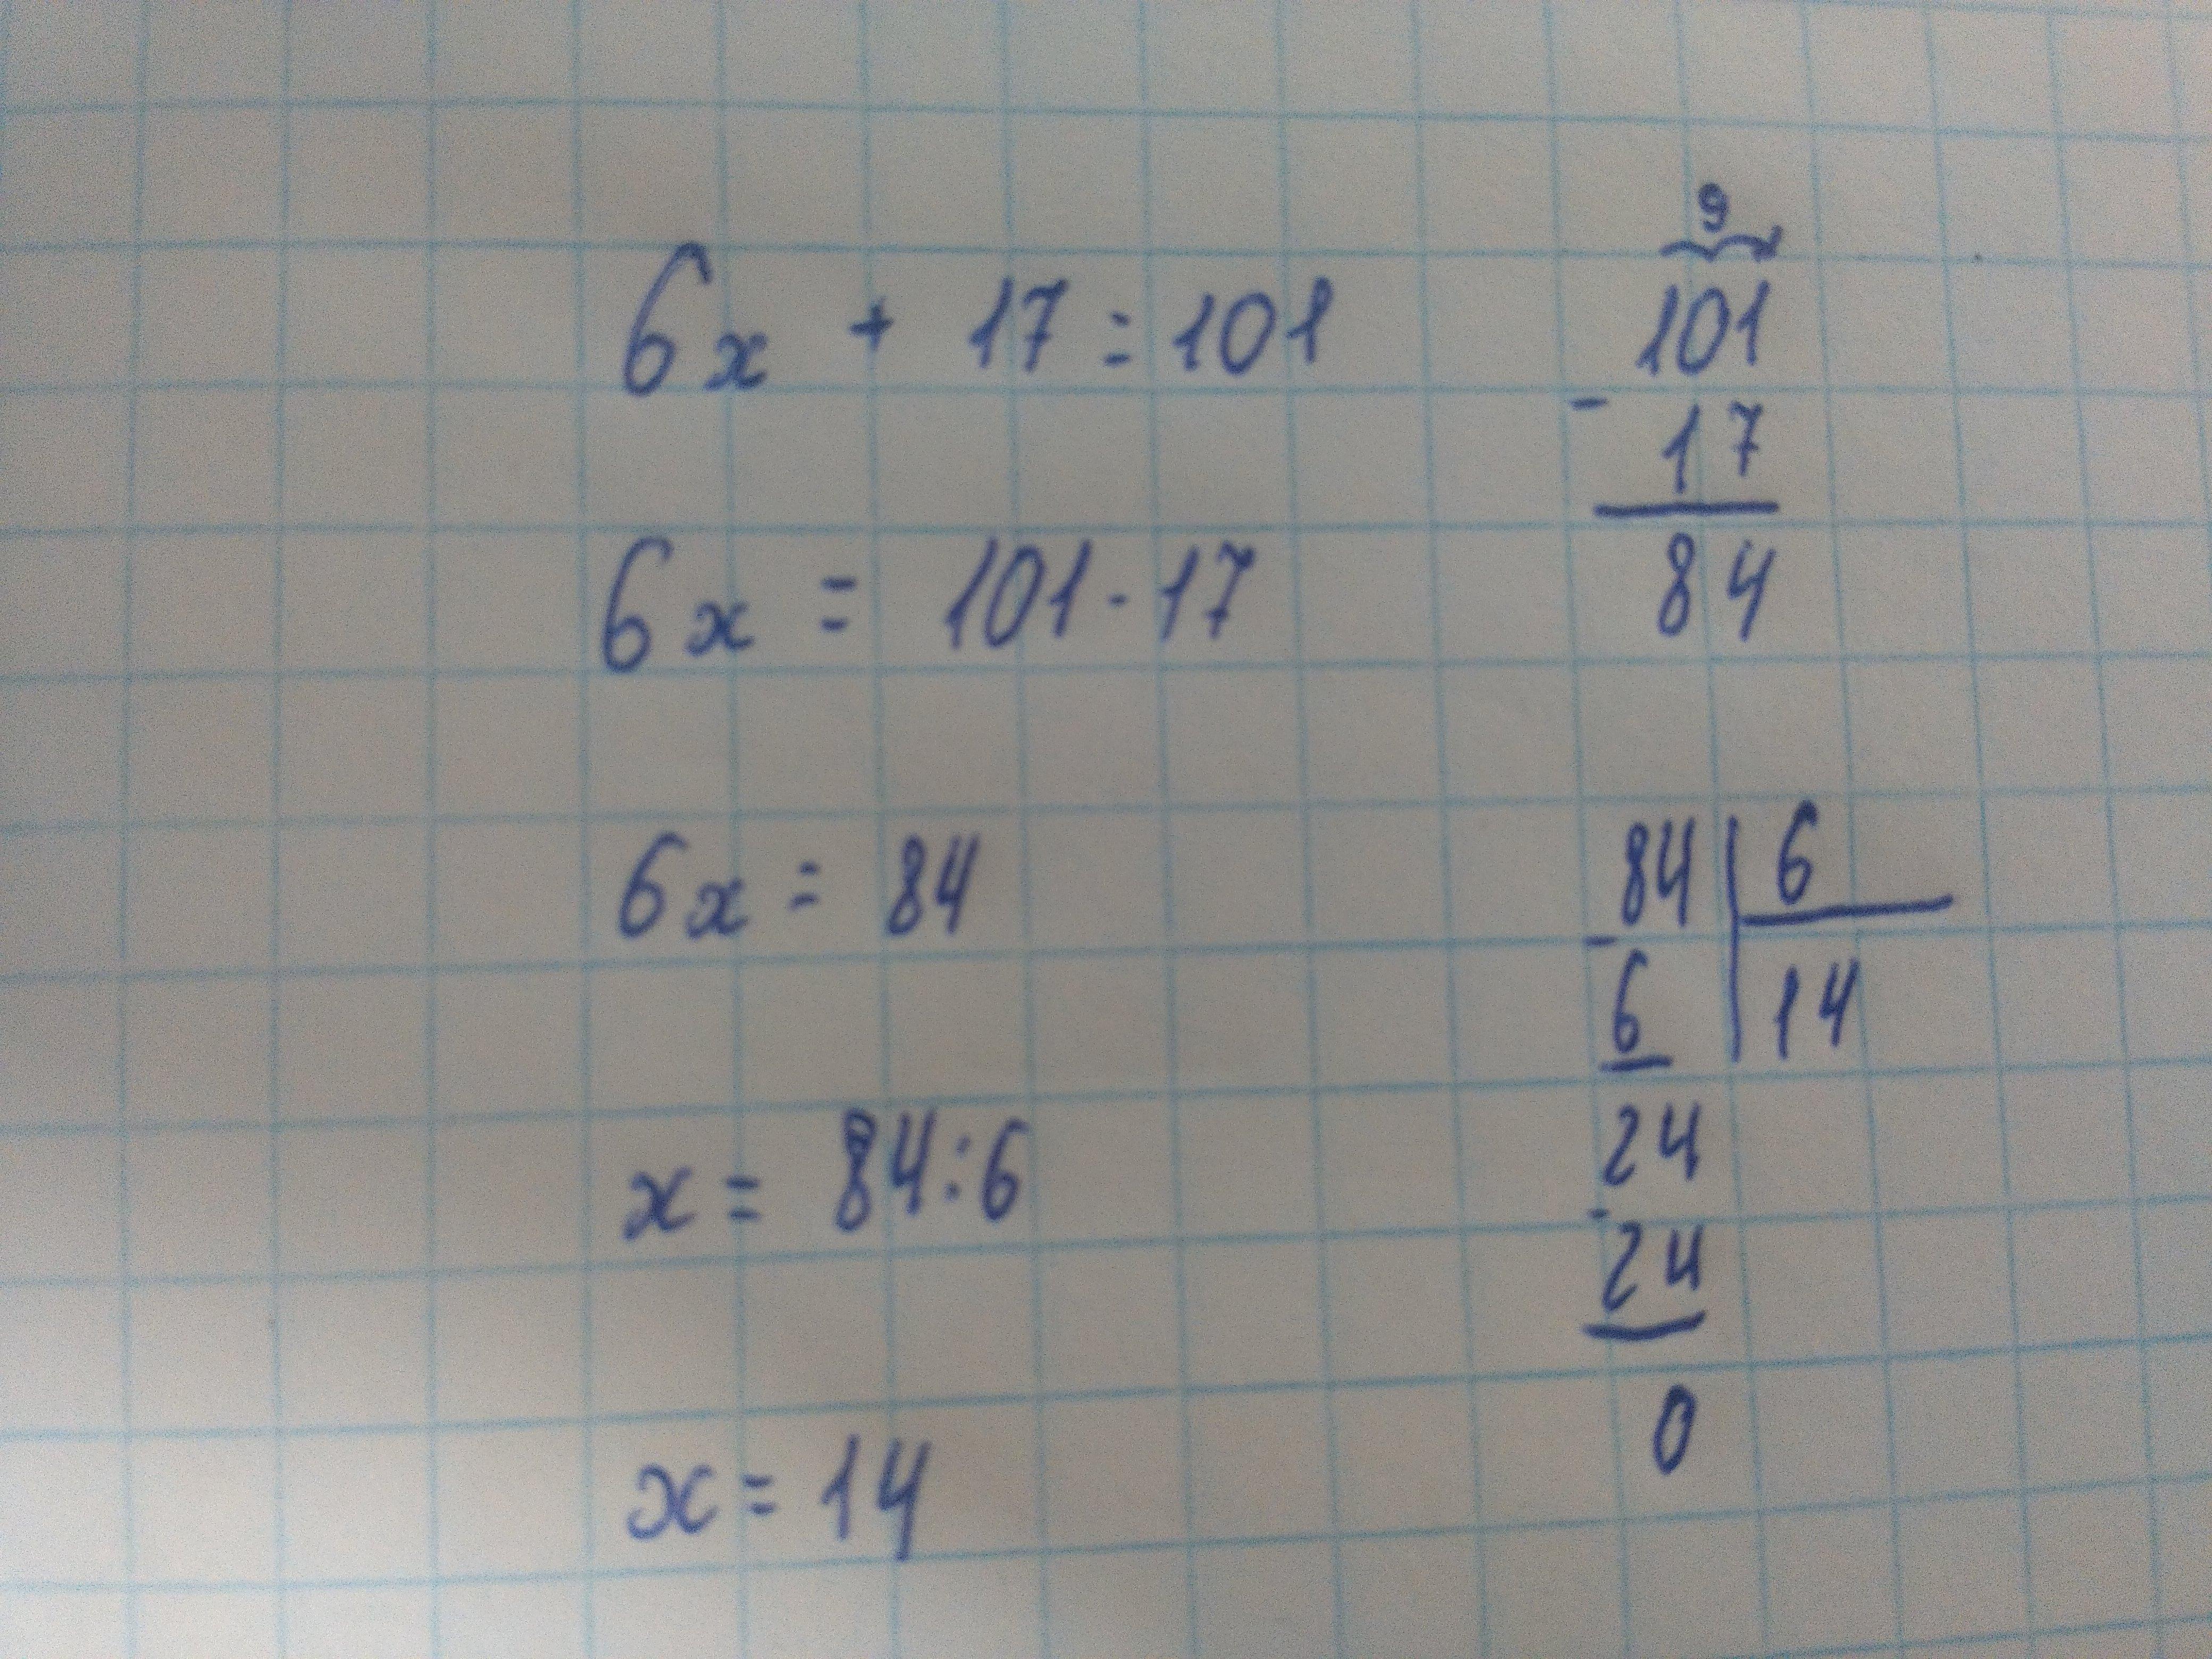 6x + 17 = 101
6x = 101 - 17
6x = 84
x = 84:6
x = 14
9
101
- 17
84
84 | 6
- 6 | 14
24
- 24
0